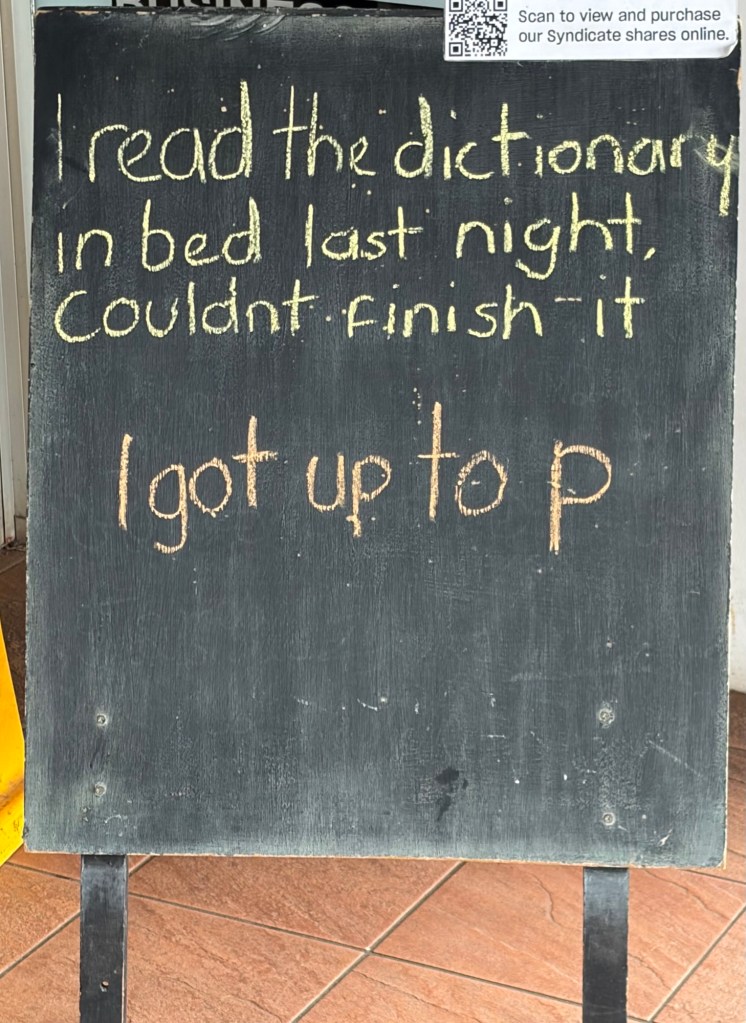 Scan to view and purchase
our Syndicate shares online.
I read the dictionary
in bed last night,
couldnt finish it
I got up to p